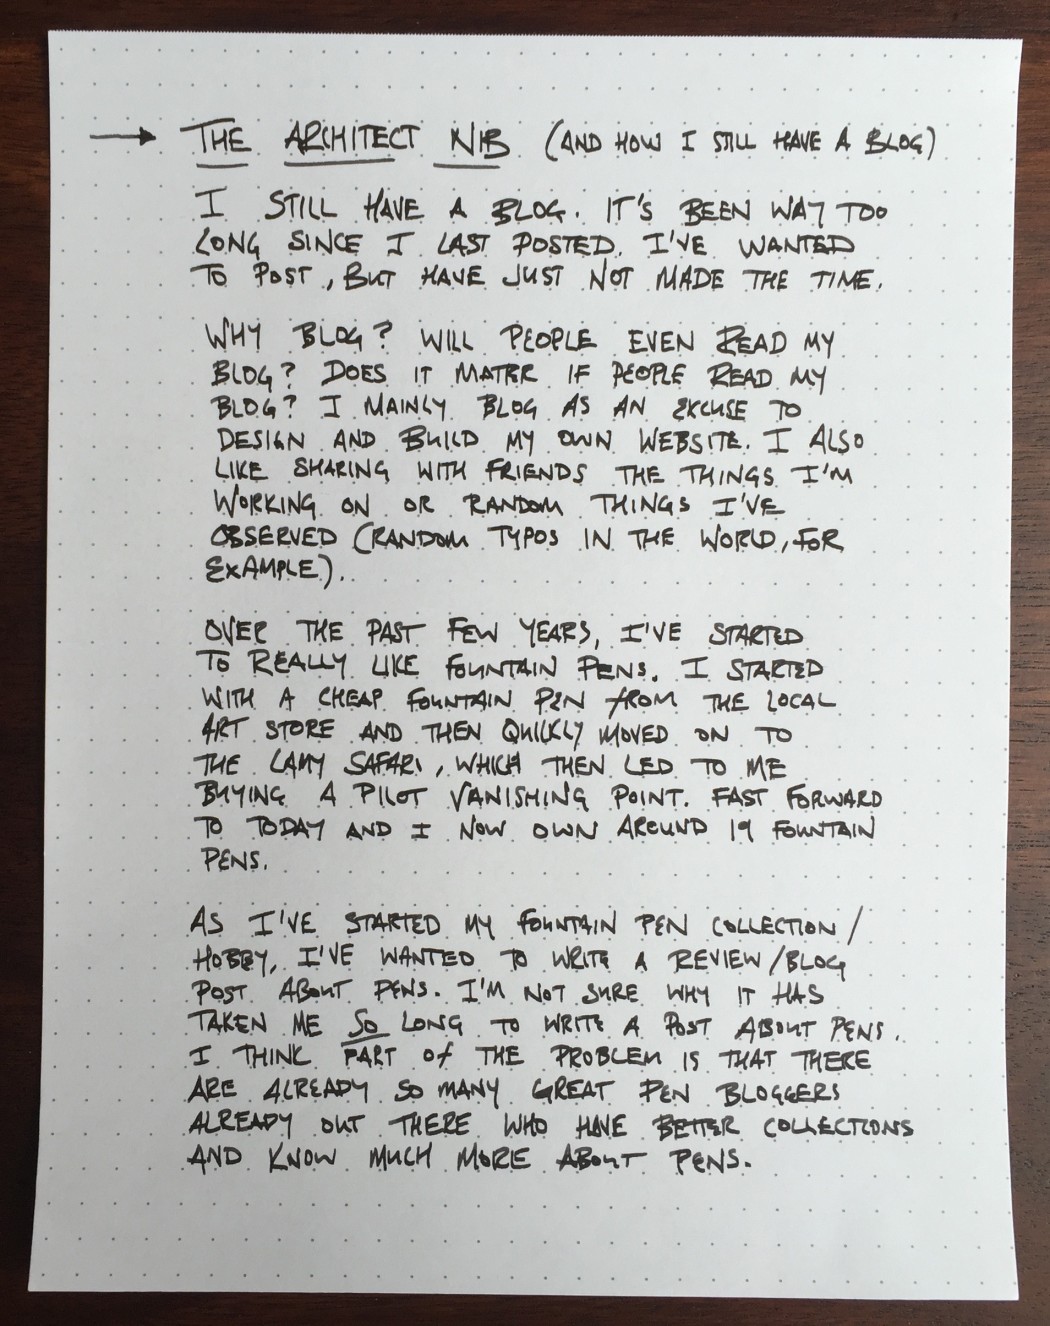 → THE ARCHITECT NIB (AND HOW I STILL HAVE A BLOG)
I STILL HAVE A BLOG. IT'S BEEN WAY TOO
LONG SINCE I LAST POSTED. I'VE WANTED
TO POST, BUT HAVE JUST NOT MADE THE TIME.
WHY BLOG? WILL PEOPLE EVEN READ MY
BLOG? DOES IT MATTER IF PEOPLE READ MY
BLOG? I MAINLY BLOG AS AN EXCUSE TO
DESIGN AND BUILD MY OWN WEBSITE. I ALSO
LIKE SHARING WITH FRIENDS THE THINGS I'M
WORKING ON OR RANDOM THINGS I'VE
OBSERVED (RANDOM TYPOS IN THE WORLD, FOR
EXAMPLE).
OVER THE PAST FEW YEARS, I'VE STARTED
TO REALLY LIKE FOUNTAIN PENS. I STARTED
WITH A CHEAP FOUNTAIN PEN FROM THE LOCAL
ART STORE AND THEN QUICKLY MOVED ON TO
THE LAMY SAFARI, WHICH THEN LED TO ME
BUYING A PILOT VANISHING POINT. FAST FORWARD
TO TODAY AND I NOW OWN AROUND 19 FOUNTAIN
PENS.
AS I'VE STARTED MY FOUNTAIN PEN COLLECTION/
HOBBY, I'VE WANTED TO WRITE A REVIEW/BLOG
POST ABOUT PENS. I'M NOT SURE WHY IT HAS
TAKEN ME SO LONG TO WRITE A POST ABOUT PENS.
I THINK PART OF THE PROBLEM IS THAT THERE
ARE ALREADY SO MANY GREAT PEN BLOGGERS
ALREADY OUT THERE WHO HAVE BETTER COLLECTIONS
AND KNOW MUCH MORE ABOUT PENS.